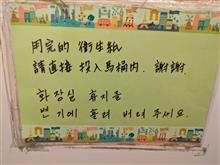 用完的 衛生紙
請直接 投入馬桶內. 謝謝.
화장실 휴지는
변기에 흘려 버려 주세요.